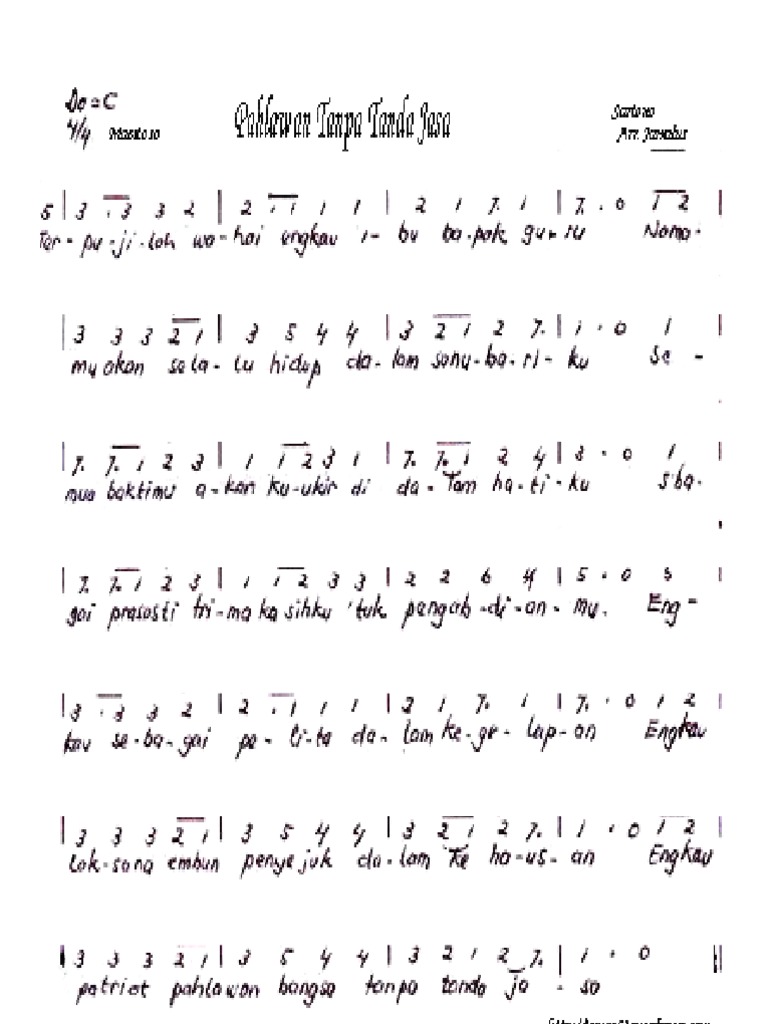 Do = C
Pahlawan Tanpa Tanda Jasa
Sartono
4/4
Maestoso
Arr.
5 | 3 . 3 3 2 | 2 . 1 1 1 | 2 1 7. 1 | 7. . 0 1 2 |
Ter - pu - ji - lah wa - hai engkau i - bu ba - pak gu - ru Nama -
| 3 3 3 2 1 | 3 5 4 4 | 3 2 1 2 7. | 1 . 0 1 |
mu akan sela - lu hidup da - lam sanu - ba - ri - ku Se -
| 7. 7. 1 2 3 | 1 1 2 3 1 | 7. 7. 1 2 4 | 3 . 0 1 |
mua baktimu a - kan ku - ukir di da - lam ha - ti - ku sba -
| 7. 7. 1 2 3 | 1 1 2 3 3 | 2 2 6 4 | 5 . 0 5 |
gai prasasti tri - ma ka sihku 'tuk pengab - di - an - mu. Eng -
| 3 . 3 3 2 | 2 . 1 1 1 | 2 1 7. 1 | 7. . 0 1 2 |
kau se - ba - gai pe - li - ta da - lam ke - ge - lap - an Engkau
| 3 3 3 2 1 | 3 5 4 4 | 3 2 1 2 7. | 1 . 0 1 2 |
Lak - sana embun penyejuk da - lam ke ha - us - an Engkau
| 3 3 3 2 1 | 3 5 4 4 | 3 2 1 2 7. | 1 . 0 ||
patriot pahlawan bangsa tanpa tanda ja - sa